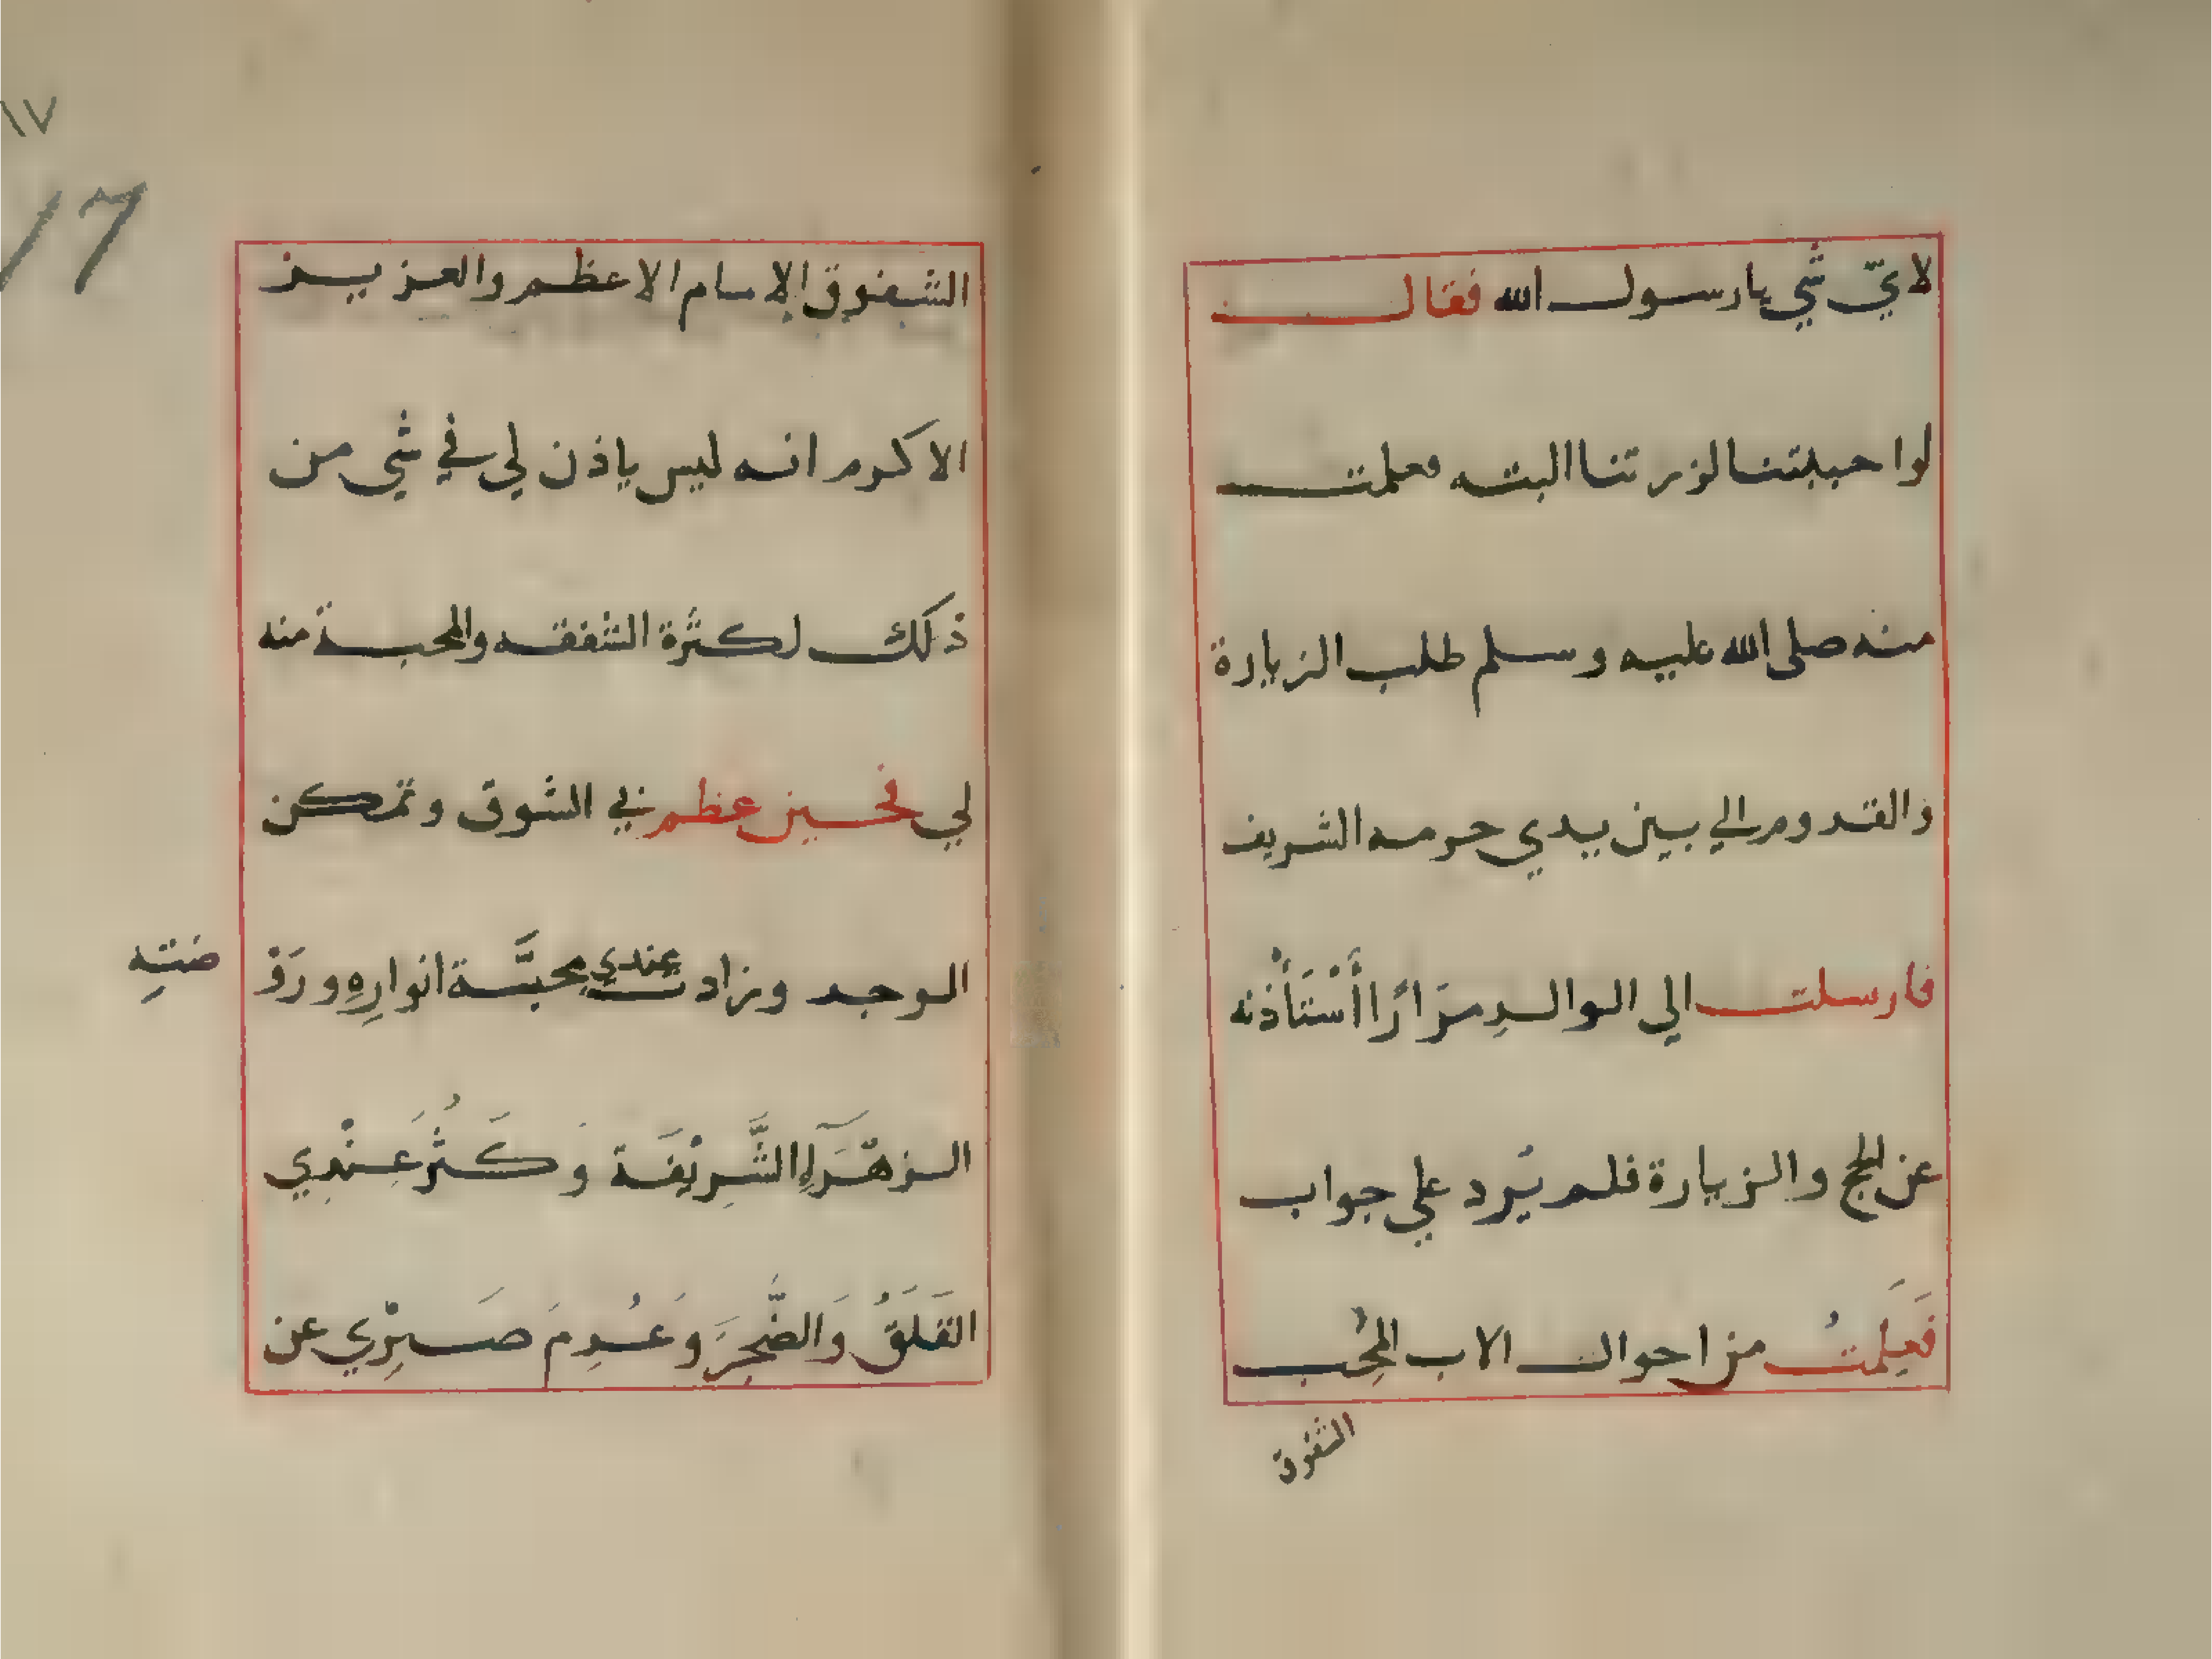 لايّ شي يارسول الله فقال
لواحبيتنا لزرتنا البته فعلمت
منه صلى الله عليه وسلم طلب الزيارة
والقدوم الي بين يدي حرمه الشريف
فارسلت الي الوالدِ مِرَارًا أَسْتَأْذْنه
عن الحج والزيارة فلم يُرد علي جواب
فَعَلِمتُ من احوال الاب المُحِب
الشفوق
١٧
17
الشفوق الامام الاعظم والعزيز
الاكرم انه ليس ياذن لي في شي من
ذلك لكثرة الشفقه والمحبة منه
لي فحسين عظم في الشوق وتمكن
الوجد وزادت عندي محبَّة انوارِهِ ورَوْ
ضتِه
الزهّرَآءِ الشَّرِيْفَة وَكَثُرَ عِنْدِي
القَلَقُ وَالضَّجرَ وَعُدِمَ صَبْرِي عن